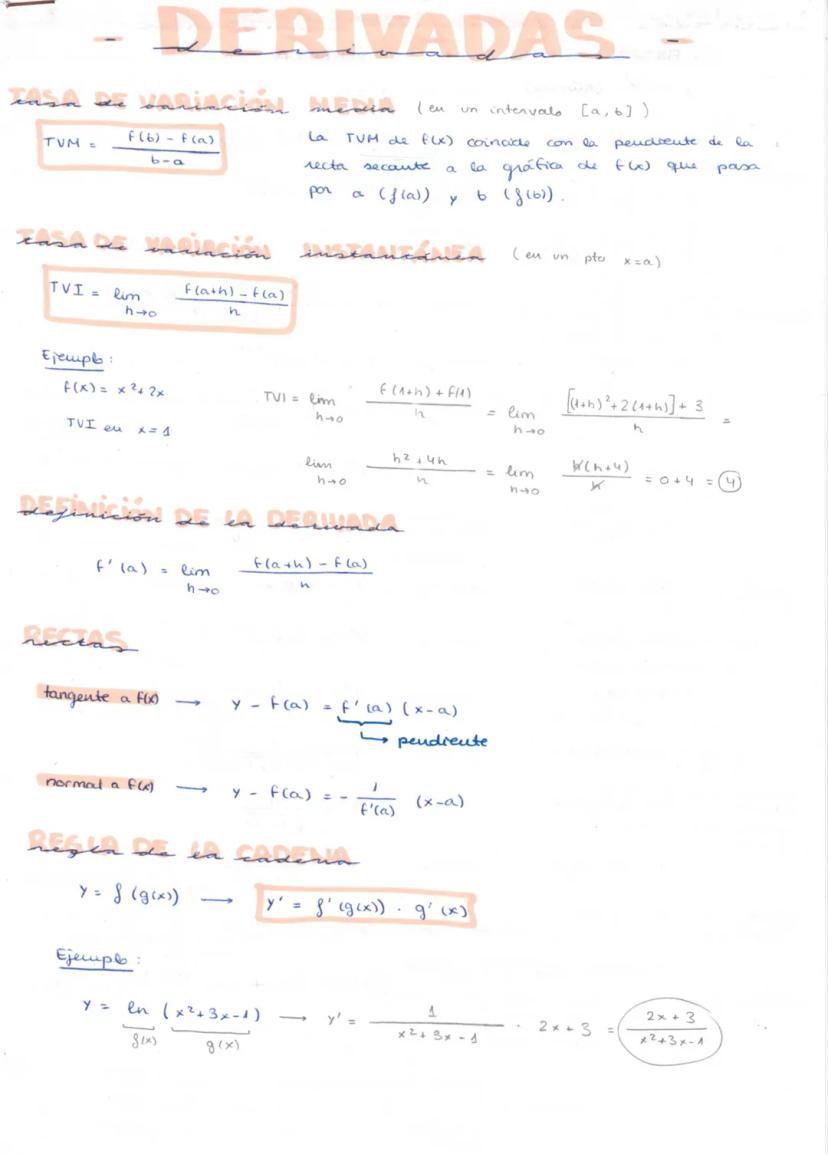 - DERIVADAS -
derivadas
TASA DE VARIACIÓN MEDIA (en un intervalo [a, b])
TVM = f(b) - f(a) / b-a
La TVM de f(x) coincide con la pendiente de la
recta secante a la gráfica de f(x) que pasa
por a (f(a)) y b (f(b)).
TASA DE VARIACIÓN INSTANTÁNEA (en un pto x=a)
TVI = lim h→0 f(a+h) - f(a) / h
Ejemplo:
f(x) = x² + 2x
TVI en x = 1
TVI = lim h→0 f(1+h) + f(1) / h = lim h→0 [(1+h)² + 2(1+h)] + 3 / h =
lim h→0 h² + 4h / h = lim h→0 h(h+4) / h = 0 + 4 = 4
DEFINICIÓN DE LA DERIVADA
f'(a) = lim h→0 f(a+h) - f(a) / h
RECTAS
tangente a f(x) → y - f(a) = f'(a) (x-a)
↳ pendiente
normal a f(x) → y - f(a) = - 1 / f'(a) (x-a)
REGLA DE LA CADENA
y = f(g(x)) → y' = f'(g(x)) · g'(x)
Ejemplo:
y = ln (x² + 3x - 1) → y' = 1 / x² + 3x - 1 · 2x + 3 = 2x + 3 / x² + 3x - 1
f(x) g(x)